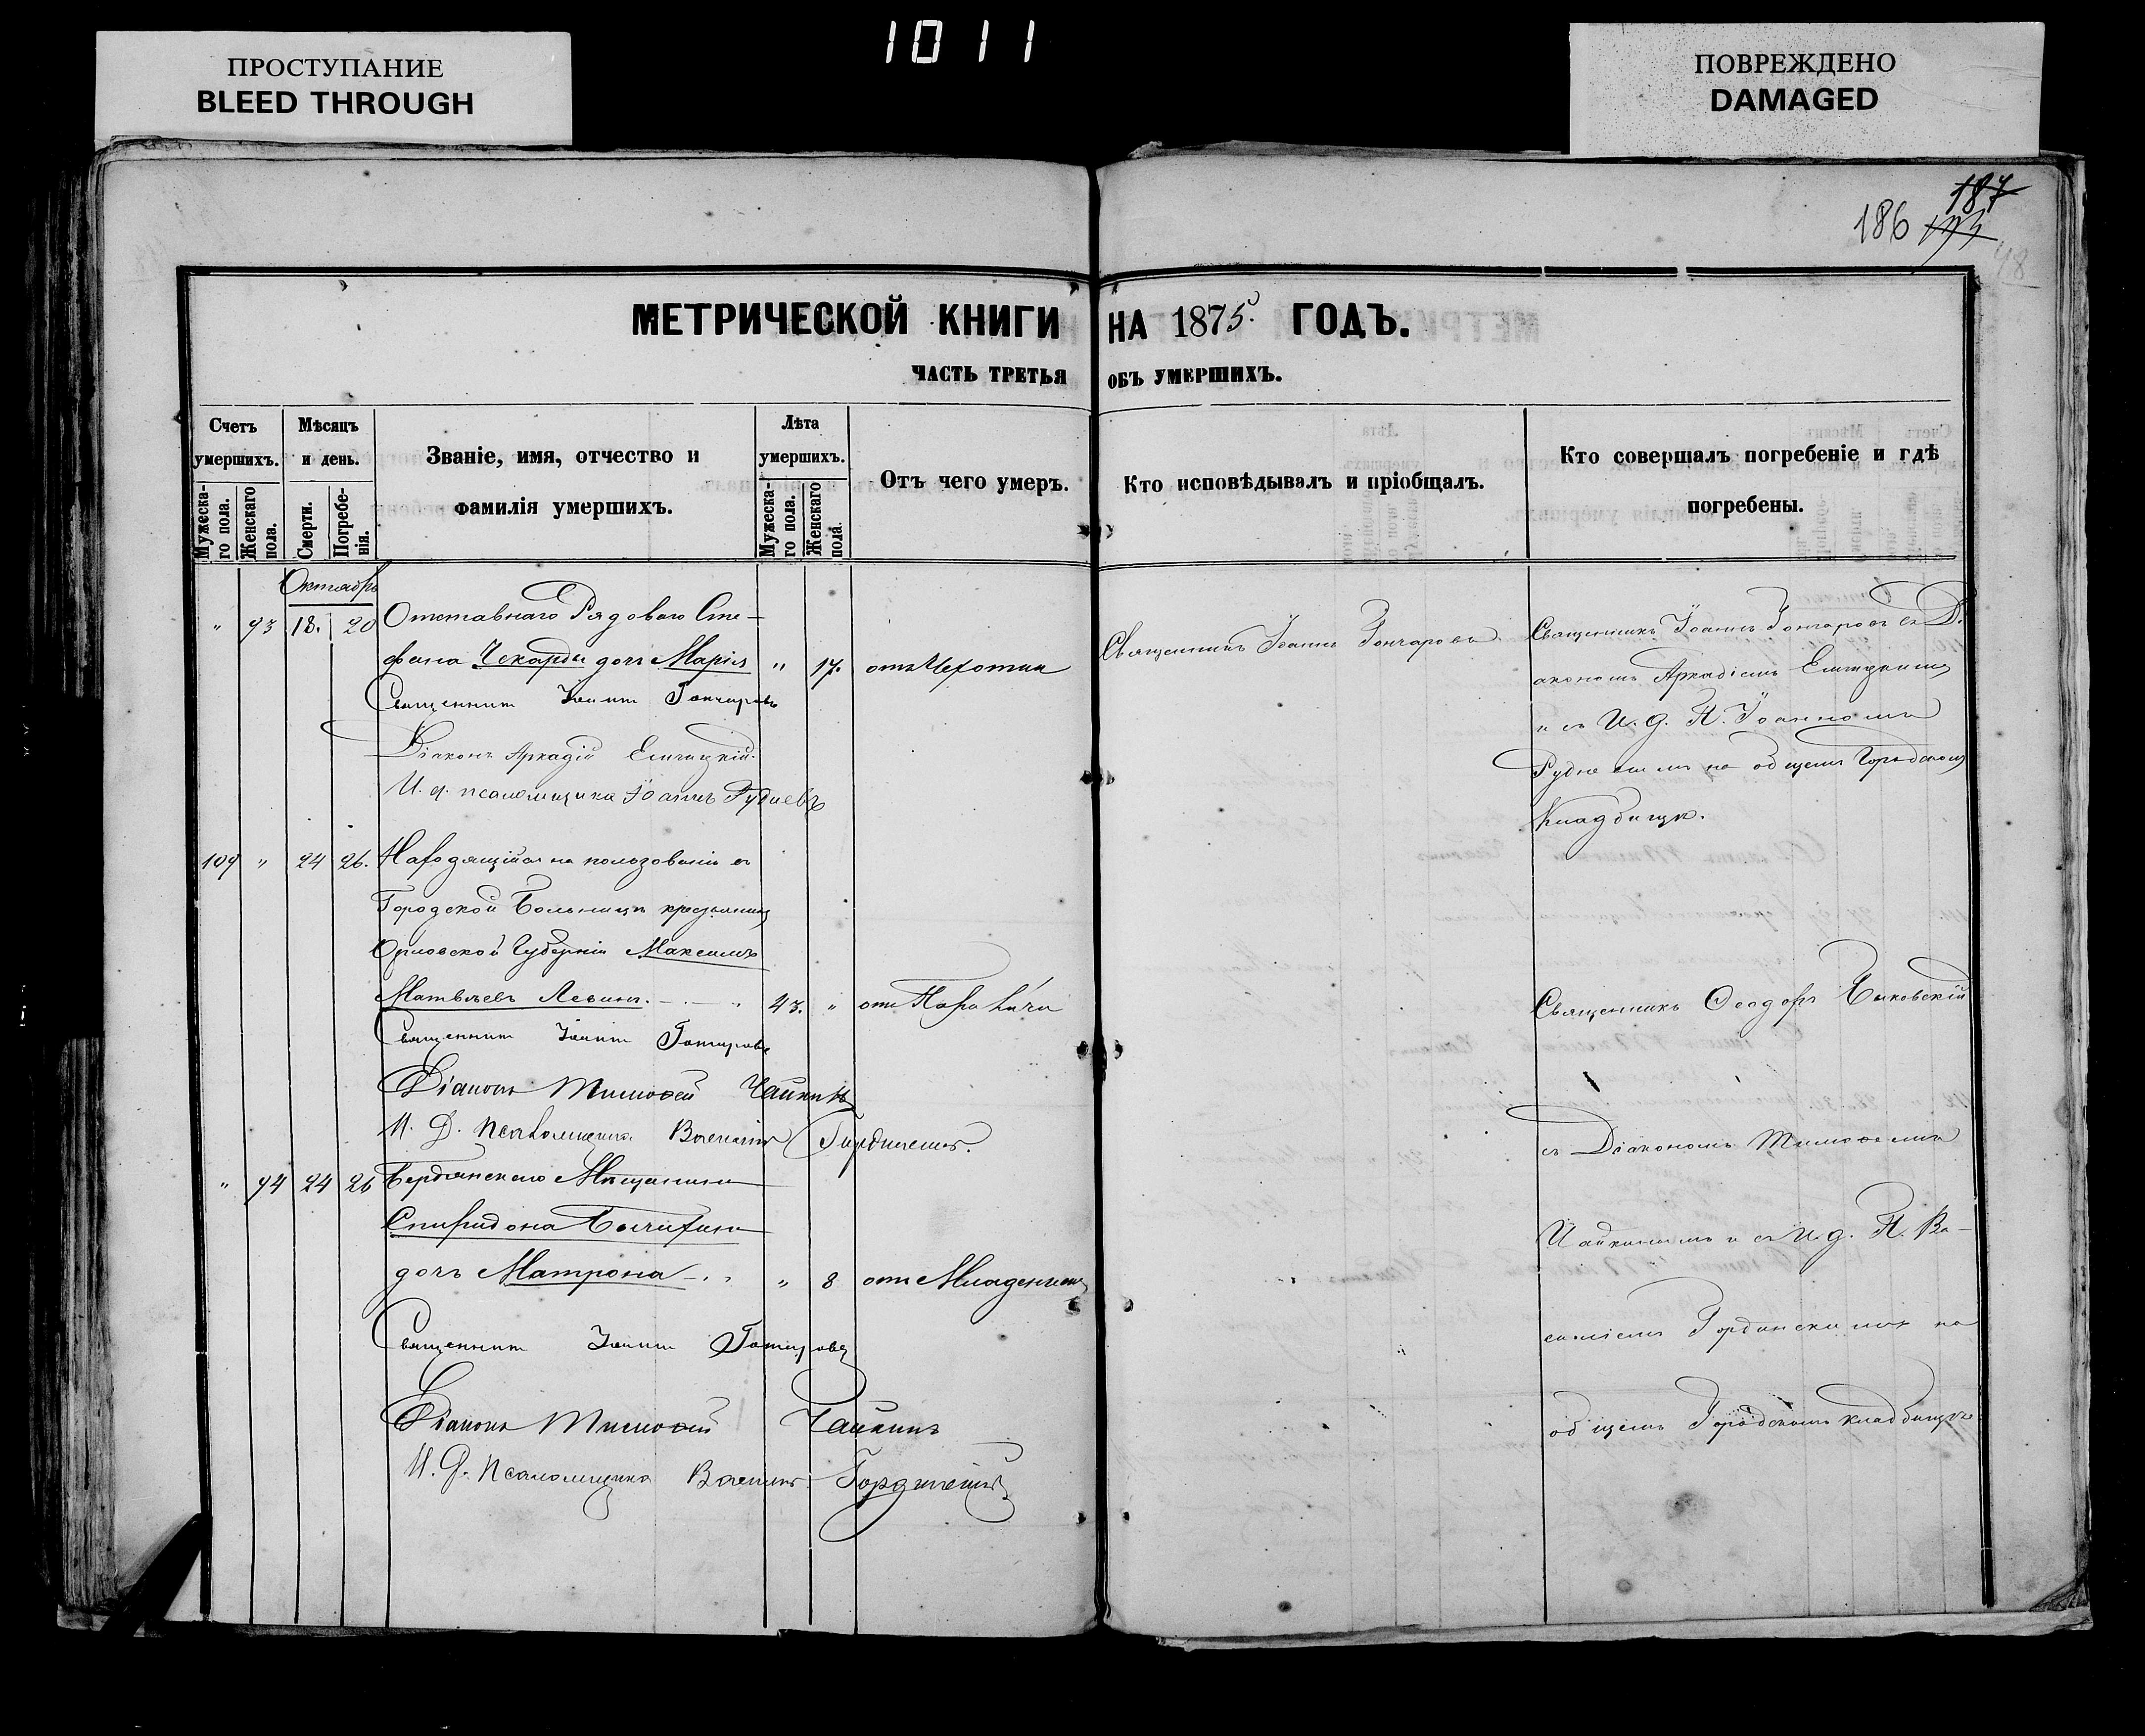 1011
ПРОСТУПАНИЕ
BLEED THROUGH
ПОВРЕЖДЕНО
DAMAGED
187
186
МЕТРИЧЕСКОЙ КНИГИ НА 1875 ГОДЪ.
ЧАСТЬ ТРЕТЬЯ ОБЪ УМЕРШИХЪ.
Счетъ умершихъ.
Мужескаго пола.
Женскаго пола.
Мѣсяцъ и день.
Смерти.
Погребенія.
Званіе, имя, отчество и
фамилія умершихъ.
Лѣта умершихъ.
Мужескаго пола.
Женскаго пола.
Отъ чего умеръ.
Кто исповѣдывалъ и пріобщалъ.
Кто совершалъ погребеніе и гдѣ
погребены.
Октябрь
" 93 18. 20 Отставнаго Рядоваго Сте-
фана Чекарды дочь Марія " 17. отъ Чахотки
Священникъ Іоаннъ Гончаровъ
Священникъ Іоаннъ Гончаровъ
Діаконъ Аркадій
И. д. псаломщика Іоаннъ Рудневъ
Священникъ Іоаннъ Гончаровъ съ Ді-
акономъ Аркадіемъ
и съ И. д. П. Іоанномъ
Рудневымъ на общемъ Городскомъ
Кладбищѣ.
109 " 24 26. Находящійся на пользованіи въ
Городской Больницѣ крестьянинъ
Орловской Губерніи Максимъ
Матвѣевъ Левинъ. 43. " отъ Паралича
Священникъ Іоаннъ Гончаровъ
Діаконъ Тимофей Чайкинъ
И. Д. Псаломщика Василій
" 94 24 26 Бердянскаго Мѣщанина
Спиридона
дочь Матрона " 8 отъ Младенческ
Священникъ Іоаннъ Гончаровъ
Діаконъ Тимофей Чайкинъ
И. Д. Псаломщика Василій
Священникъ Ѳеодоръ Быковскій
съ Діакономъ Тимофеемъ
Чайкинымъ и съ И. д. П. Ва-
силіемъ Гординскимъ на
общемъ Городскомъ кладбищѣ.